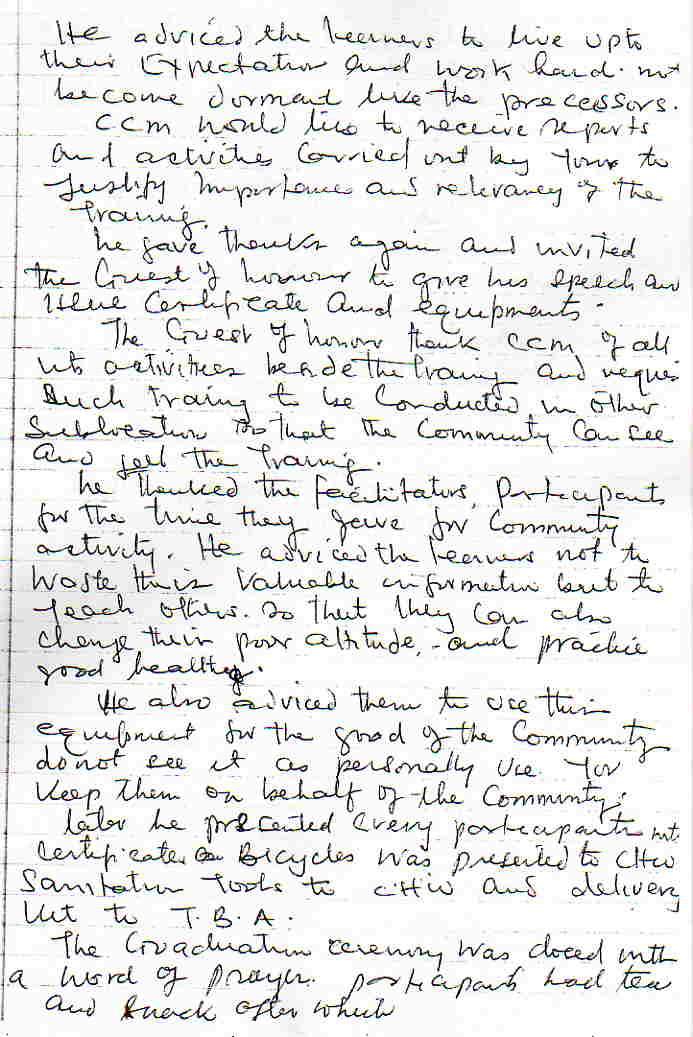 He adviced the learners to live upto
their Expectation and work hard. not
become dormant like the precessors.
CCM would like to receive reports
and activities Carried out by your to
Justify Importance and relevancy of the
Training.
he gave thanks again and invited
the Guest of honour to give his speech and
issue Certificate and equipments.
The Guest of honor thank CCM of all
its activities beside the Traning and reques
Such traing to be Conducted in other
Sublocation So that the Community Can see
And feel the Traning.
he thanked the facilitators, Participants
for the time they gave for Community
activity. He adviced the learners not to
Waste this Valuable information but to
Teach others. So that they Can also
change their poor altitude, - and practice
good healthy.
He also adviced them to use this
equipment for the good of the Community
do not see it as personally use. You
Keep them on behalf of the Community.
later he presented Every participants with
Certificates Bicycles was presented to CHW
Sanitation Tools to CHW and delivery
kit to T.B.A.
The Graduation ceremony was closed with
a word of prayer. participants had tea
and snack after which